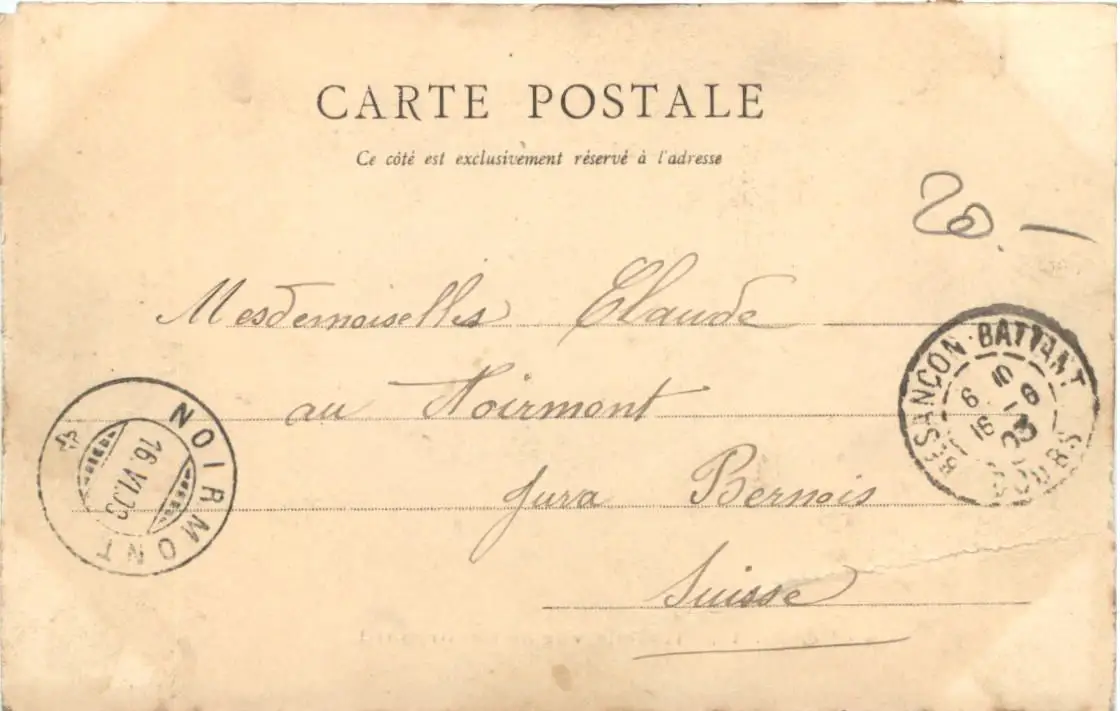 CARTE POSTALE
Ce côté est exclusivement réservé à l'adresse
20.—
Mesdemoiselles Claude
au Noirmont
Jura Bernois
Suisse
BESANÇON-BATTANT
DOUBS
NOIRMONT
16.VI.03